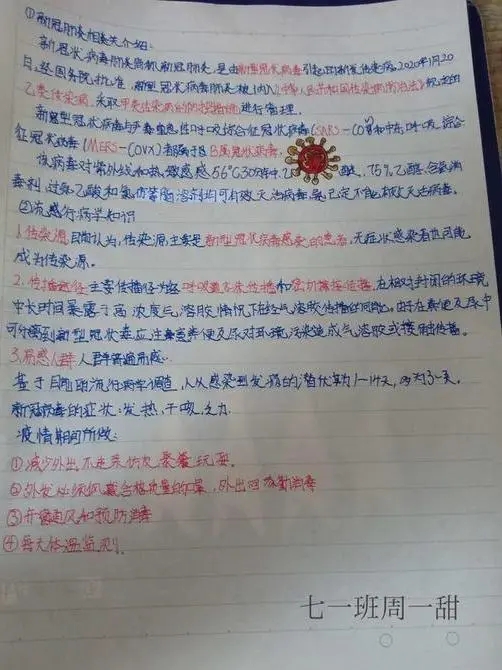 ①新冠肺炎相关介绍:
新冠状病毒肺炎简称新冠肺炎,是由新型冠状病毒引起的新发传染病,2020年1月20
日,经国务院批准,新型冠状病毒肺炎被纳入《中华人民共和国传染病防治法》规定的
乙类传染病,采取甲类传染病的防控措施进行管理.
新型冠状病毒与严重急性呼吸综合征冠状病毒(SARS-COV)和中东呼吸综合
征冠状病毒(MERS-COVX)都属于B属冠状病毒.
该病毒对紫外线和热敏感56℃30分钟、乙醚、75%乙醇、含氯消
毒剂、过氧乙酸和氯仿等脂溶剂均可有效灭活病毒,氯己定不能有效灭活病毒.
②流感行病学知识
1.传染源,目前认为,传染源主要是新型冠状病毒感染的患者,无症状感染者也可能
成为传染源.
2.传播途径:主要传播径为经呼吸道飞沫传播和密切接触传播,在相对封闭的环境
中长时间暴露于高浓度气溶胶情况下存在经气溶胶传播的可能,由于在粪便及尿中
可分离到新型冠状毒应注意粪便及尿对环境污染造成气溶胶或接触传播.
3.易感人群 人群普遍易感.
基于目前的流行病学调查,从感染到发病的潜伏期为1-14天,多为3-7天,
新冠病毒的症状:发热,干咳,乏力.
疫情期间所做:
①减少外出,不走亲访友,聚餐玩耍.
②外发必须佩戴合格质量的口罩,外出回勿勤消毒
③开窗通风和预防消毒
④每天体温监测.
七一班周一甜